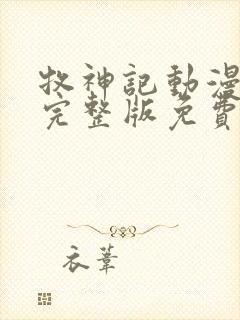 牧神記動漫
完整版免費
衣葦